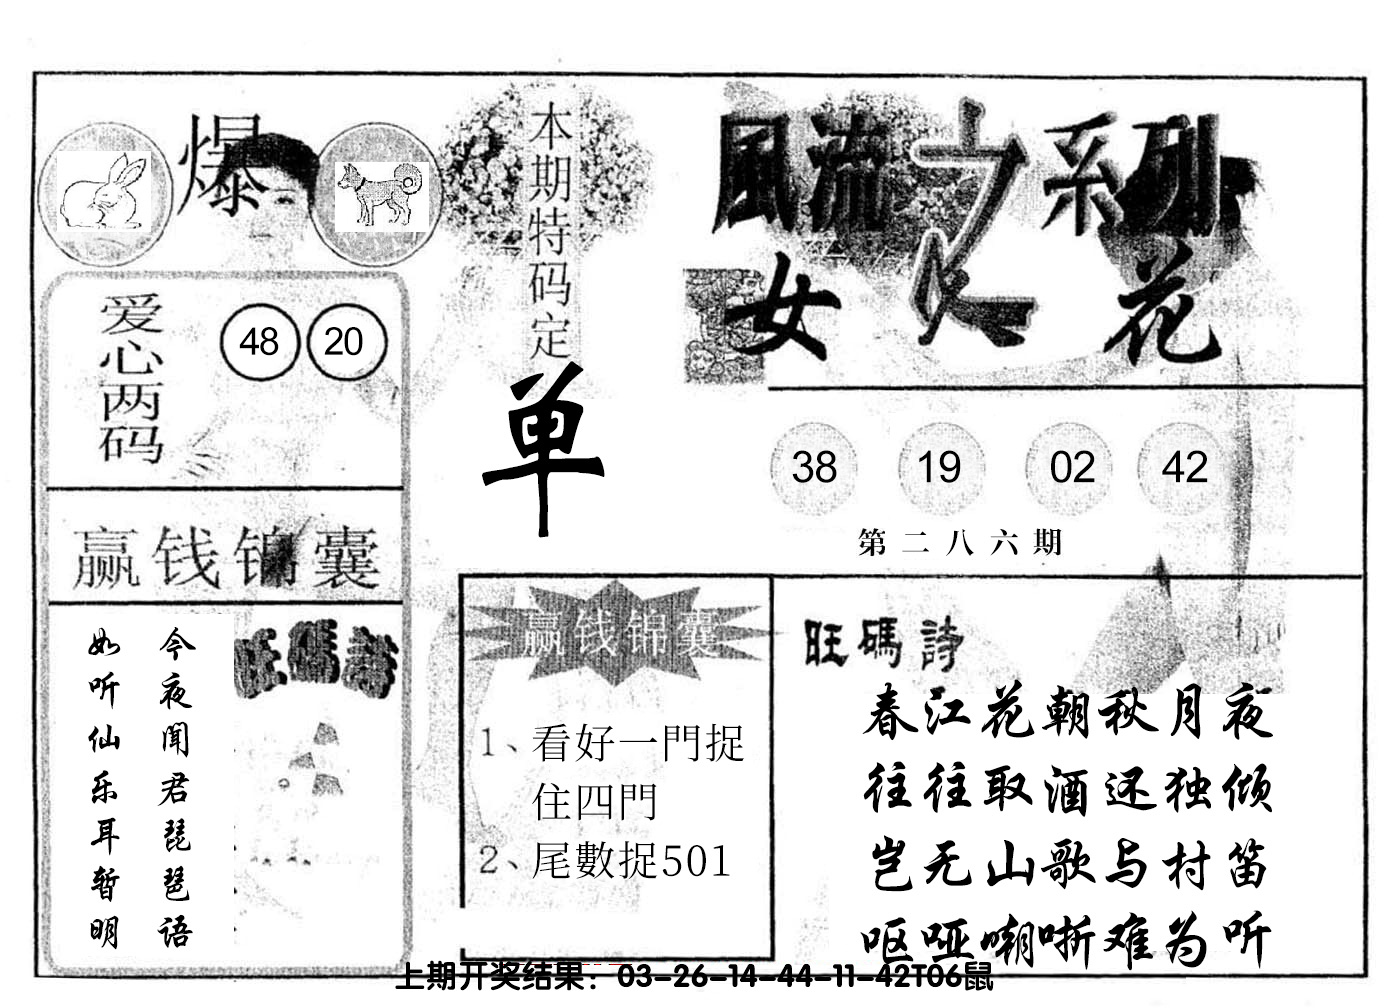 爆
本期特码定
单
風流之系列
女人花
爱心两码
48 20
38 19 02 42
第二八六期
赢钱锦囊
旺碼詩
今夜闻君琵琶语
如听仙乐耳暂明
赢钱锦囊
1、看好一門捉
住四門
2、尾數捉501
旺碼詩
春江花朝秋月夜
往往取酒还独倾
岂无山歌与村笛
呕哑嘲哳难为听
上期开奖结果：03-26-14-44-11-42T06鼠